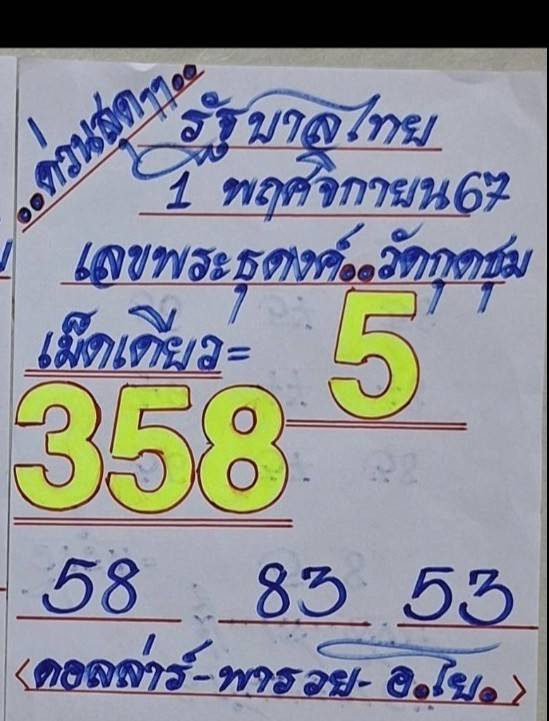 ..ด่วนสุดๆๆ..
รัฐบาลไทย
1 พฤศจิกายน67
เลขพระธุดงค์..วัดกุดชุม
เม็ดเดียว= 5
358
58 83 53
<ดอลล่าร์-พารวย- อ.โย.>